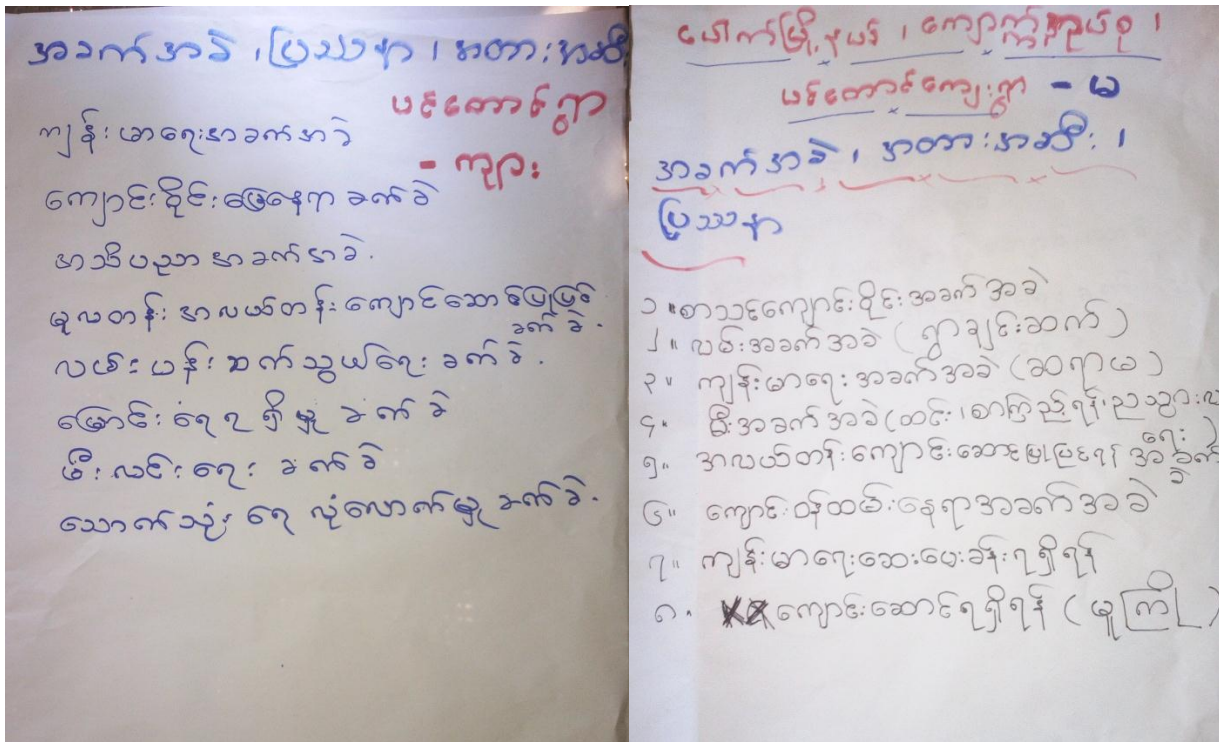 အခက်အခဲ ၊ ပြဿနာ ၊ အတားအဆီး
ပင်တောင်ရွာ
- ကျား
ကျန်းမာရေးအခက်အခဲ
ကျောင်းဝိုင်းမြေနေရာ ခက်ခဲ
အသိပညာ အခက်အခဲ.
မူလတန်း အလယ်တန်း ကျောင်ဆောင်ပြုပြင်
ခက်ခဲ.
လမ်းပန်းဆက်သွယ်ရေး ခက်ခဲ.
မြောင်းရေရရှိမှု ခက်ခဲ
မီးလင်းရေး ခက်ခဲ
သောက်သုံးရေ လုံလောက်မှု ခက်ခဲ.
ပေါက်မြို့နယ် ၊ ကျောက်
ပင်တောင်ကျေးရွာ - မ
အခက်အခဲ ၊ အတားအဆီး ၊
ပြဿနာ
၁။ စာသင်ကျောင်းဝိုင်းအခက်အခဲ
၂။ လမ်းအခက်အခဲ (ရွာချင်းဆက်)
၃။ ကျန်းမာရေးအခက်အခဲ (ဆရာမ)
၄။ မီးအခက်အခဲ (ထင်း ၊ စာကြည့်ရန်၊ ညသွားလာ
ရေး)
၅။ အလယ်တန်းကျောင်းဆောင်ပြုပြင်ရန် အခက်
ခဲ
၆။ ကျောင်းဝန်ထမ်းနေရာအခက်အခဲ
၇။ ကျန်းမာရေးဆေးပေးခန်းရရှိရန်
၈. ကျောင်းဆောင်ရရှိရန် (မူကြို)